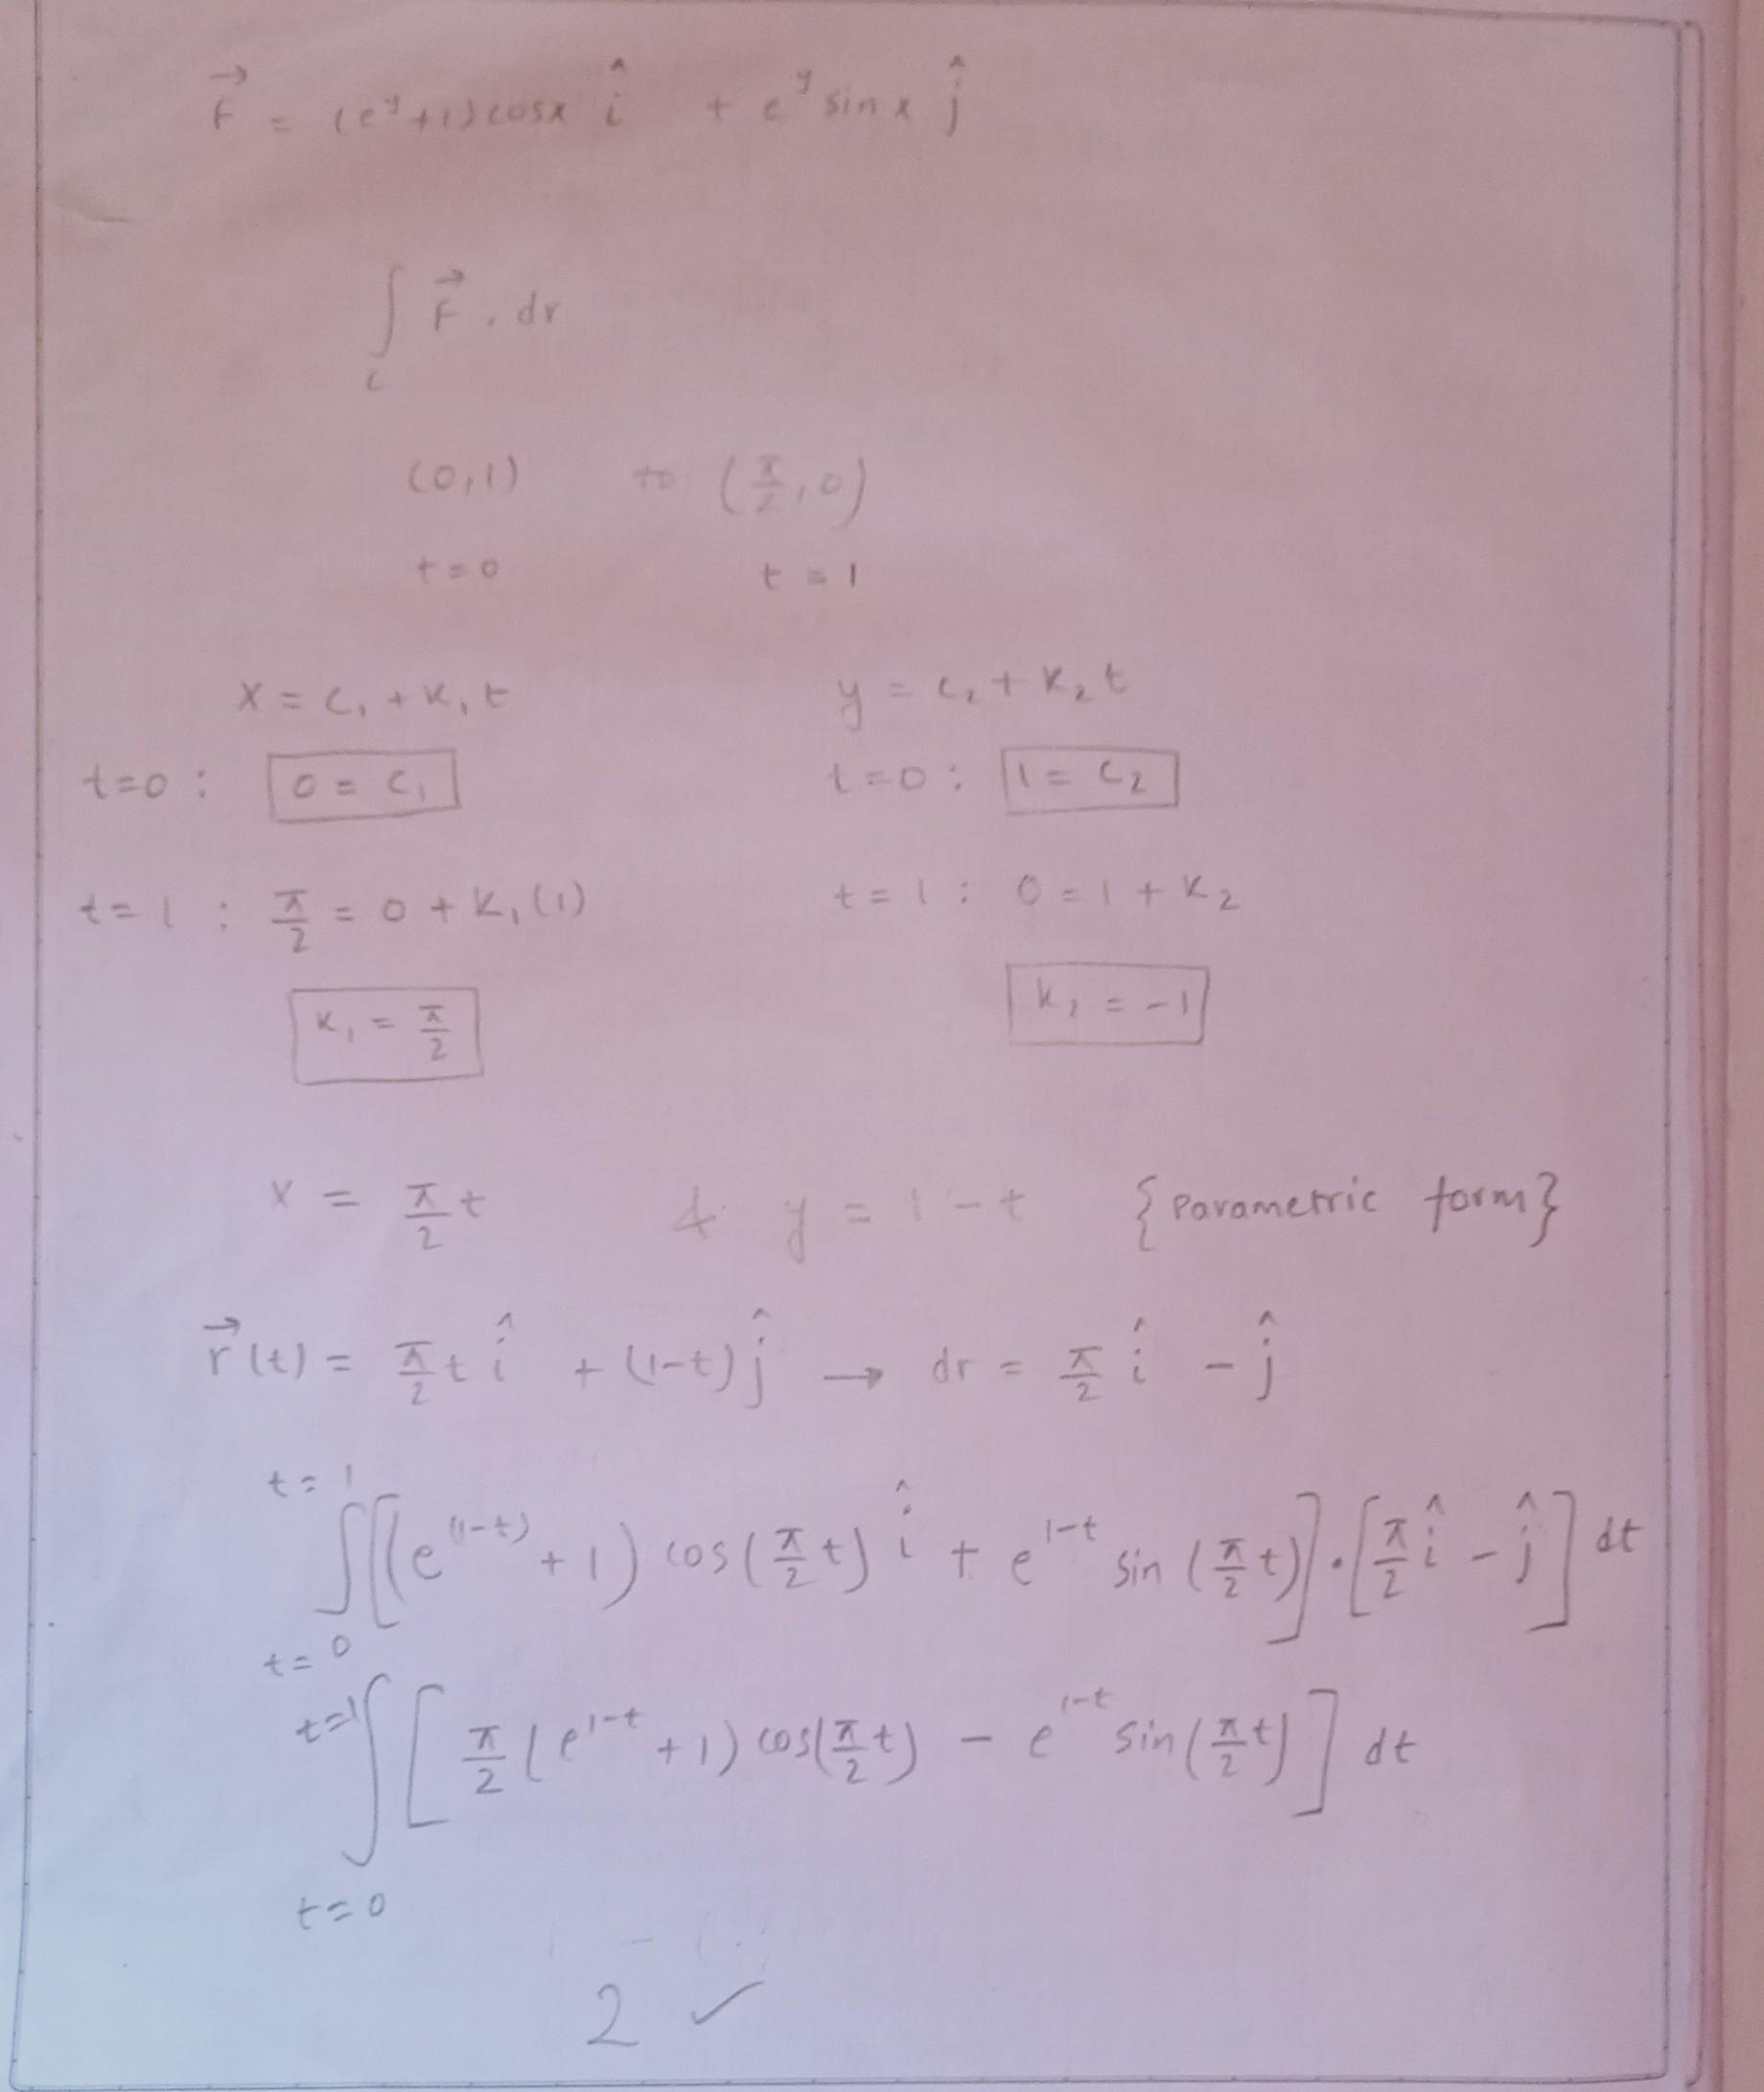 F⃗ = (e^y+1) cosx î + e^y sin x ĵ
∫_C F⃗ . dr
(0,1) to (π/2, 0)
t=0 t = 1
x = c₁ + k₁t y = c₂ + k₂t
t=0 : 0 = c₁ t=0 : 1 = c₂
t=1 : π/2 = 0 + k₁(1) t=1 : 0 = 1 + k₂
k₁ = π/2 k₂ = -1
x = π/2 t & y = 1-t {Parametric form}
r⃗(t) = π/2 t î + (1-t) ĵ → dr = π/2 î - ĵ
t=1
∫[(e^(1-t) + 1) cos(π/2 t) î + e^1-t sin (π/2 t)] . [π/2 î - ĵ] dt
t=0
t=1
∫ [π/2 (e^1-t + 1) cos(π/2 t) - e^1-t sin(π/2 t)] dt
t=0
2 ✓